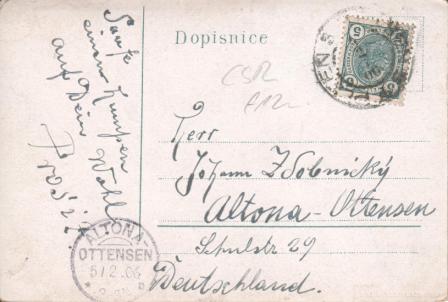 Saufe
einen Humpen
auf Dein Wohl
Prosit!
Dopisnice
5
ČSR
Herr
Johann Zlobnický
Altona-Ottensen
Schulstr 29
Deutschland.
ALTONA-
OTTENSEN
5/2.06